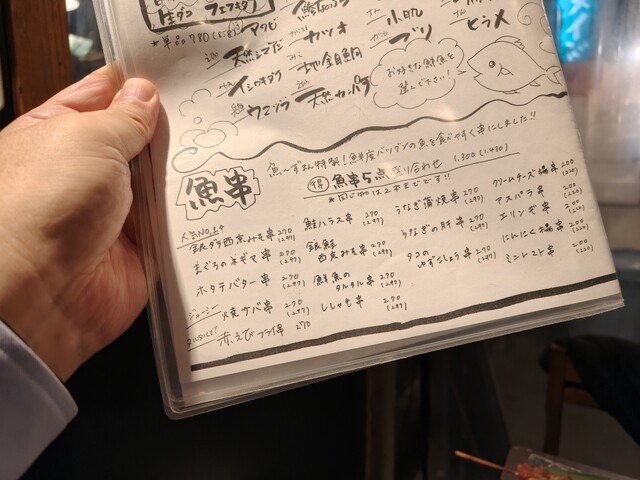 生ダコ
★単品780(858)
マグロ
天然シマアジ
カツオ
小肌
ブリ
ヒラメ
イシガキダイ
地金目鯛
天然カンパチ
お好きな鮮魚を
選んで下さい!
魚串
魚〜ずまん特製!鮮度バツグンの魚を食べやすく串にしました!!
得 魚串5点盛り合わせ 1,300(1,430)
人気NO.1
銀ダラ西京みそ串 270(297)
まぐろのネギマ串 270(297)
ホタテバター串 270(297)
ジューシー
焼サバ串 270(297)
タルタルで!
赤えびフライ串 270
鮭ハラス串 270(297)
銀鮭
西京みそ串 270(297)
鮮魚の
タルタル串 270(297)
ししゃも串 270(297)
うなぎ蒲焼串 270(297)
うなぎの肝串 270(297)
タコの
ゆずこしょう串 270(297)
クリームチーズ揚串 200(220)
アスパラ串 200(220)
エリンギ串 200(220)
にんにく揚串 200(220)
ミニトマト串 200(220)